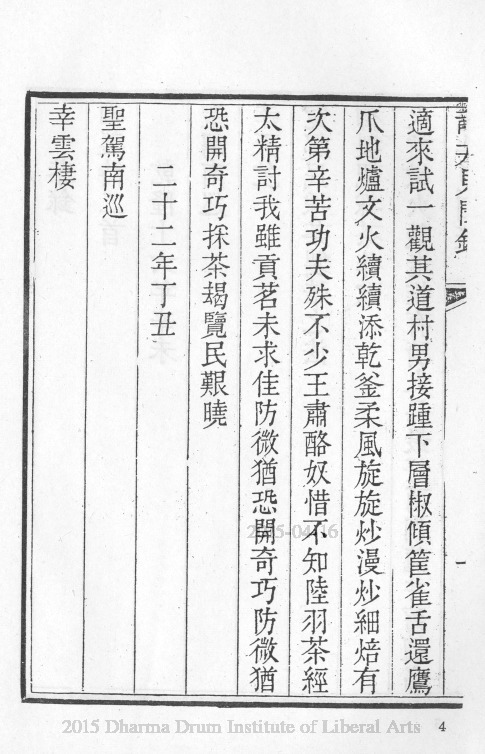 適來試一觀其道村男接踵下層椒傾筐雀舌還鷹
爪地爐文火續續添乾釜柔風旋旋炒漫炒細焙有
次第辛苦功夫殊不少王肅酪奴惜不知陸羽茶經
太精討我雖貢茗未求佳防微猶恐開奇巧防微猶
恐開奇巧採茶朅覽民艱曉
二十二年丁丑
聖駕南巡
幸雲棲
一
2015 Dharma Drum Institute of Liberal Arts
4